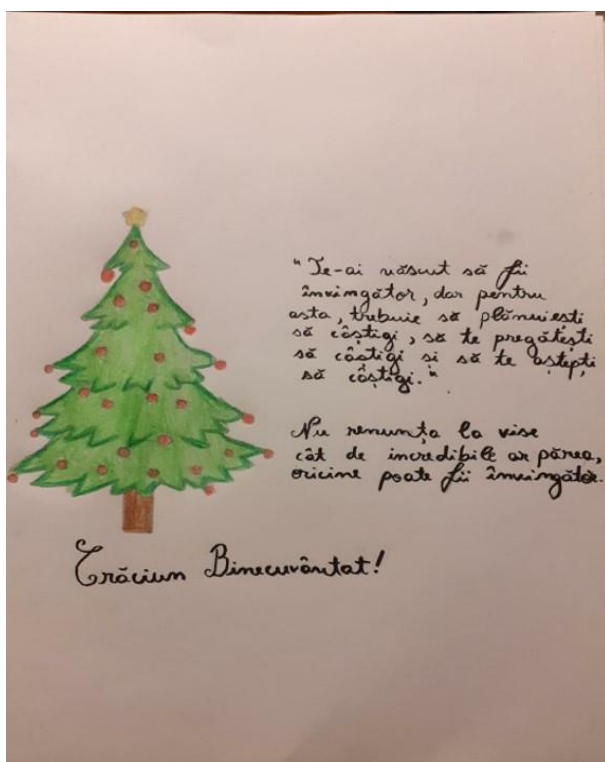 "Te-ai născut să fii
învingător, dar pentru
asta, trebuie să plănuiești
să câștigi, să te pregătești
să câștigi și să te aștepți
să câștigi."
Nu renunța la vise
cât de incredibile ar părea,
oricine poate fii învingător.
Crăciun Binecuvântat!